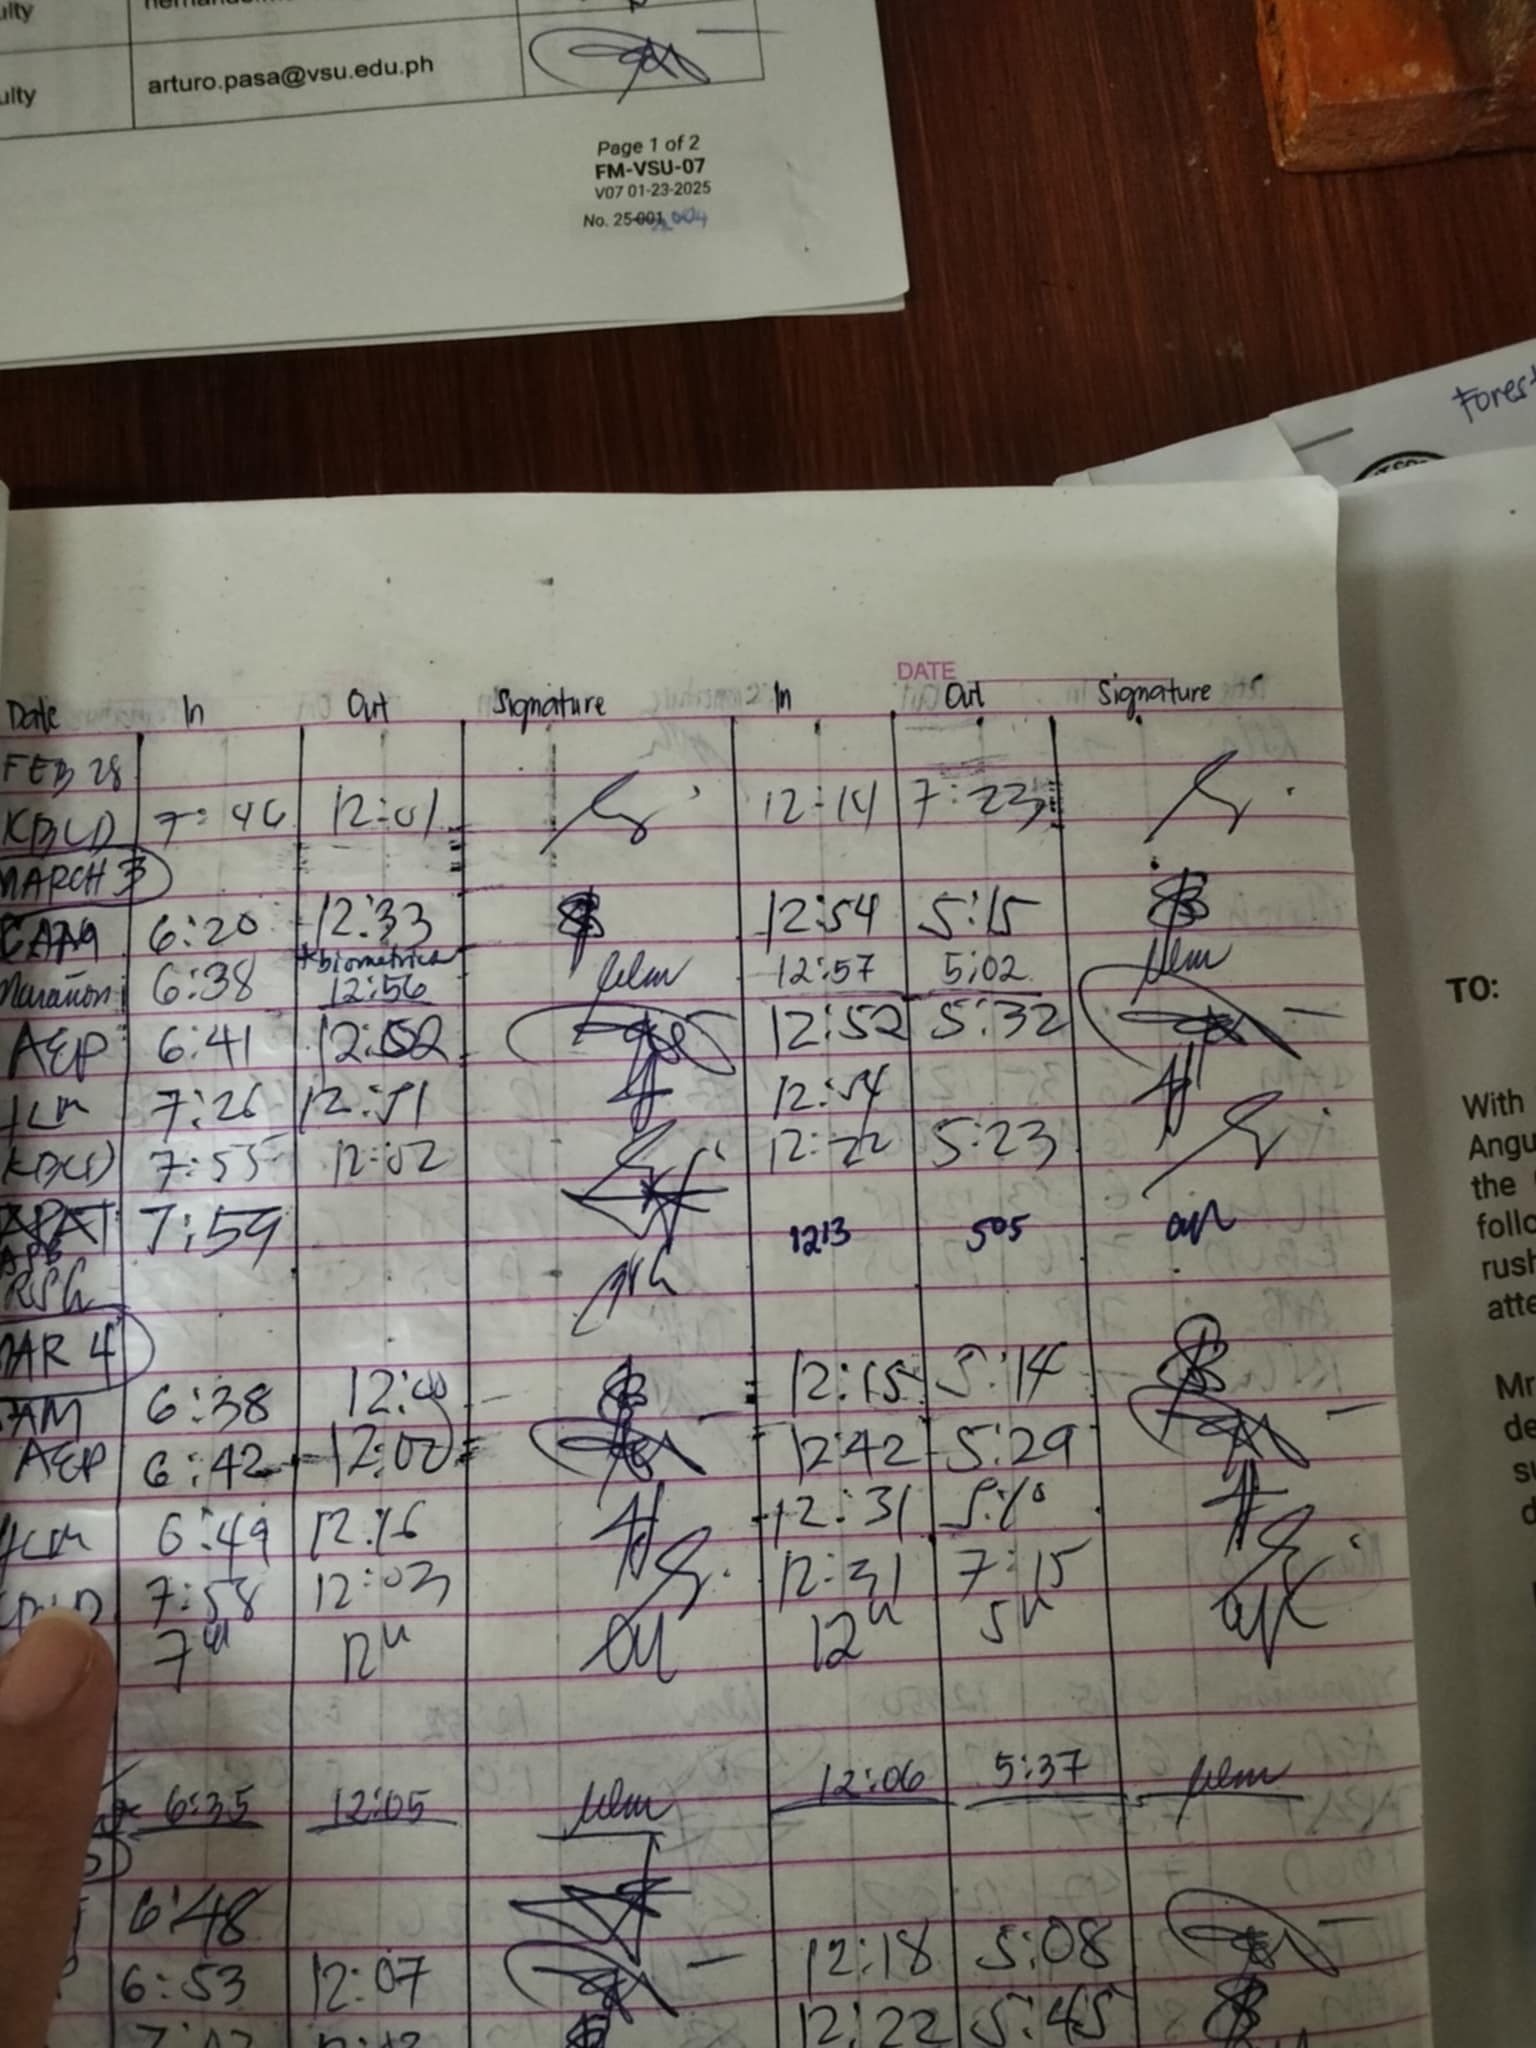 ulty
ulty arturo.pasa@vsu.edu.ph
Page 1 of 2
FM-VSU-07
V07 01-23-2025
No. 25-001 004
Forest
DATE
Date In Out Signature In Out Signature
FEB 28
KBCD 7:46 12:01 12:14 7:23
MARCH 3
6:20 12:33 12:54 5:15
*biometrics
Marañon 6:38 12:56 12:57 5:02
AEP 6:41 12:02 12:52 5:32
7:26 12:51 12:54
KBCD 7:55 12:02 12:22 5:23
7:59 1213 505
RSG
MAR 4
AM 6:38 12:00 12:15 5:14
AEP 6:42 12:00 12:42 5:29
6:49 12:16 12:31 5:10
7:58 12:03 12:31 7:15
6:35 12:05 12:06 5:37
6:48
6:53 12:07 12:18 5:08
12:22 5:45
TO:
With
Angu
the
follo
rush
atte
Mr
de
su
d